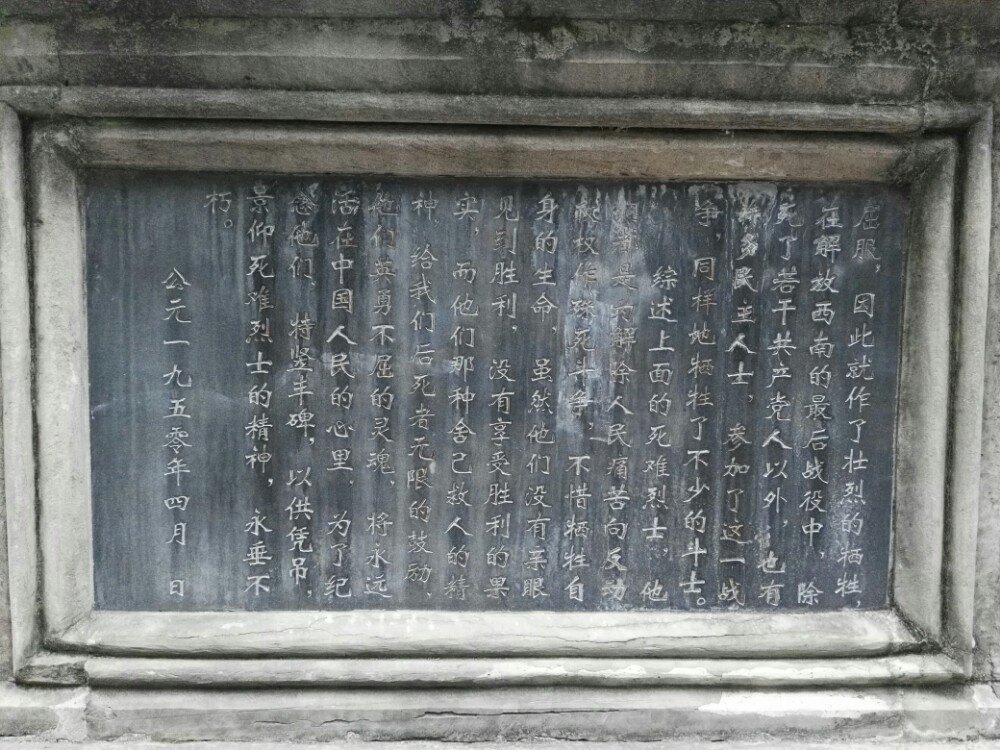 屈服，因此就作了壮烈的牺牲，
在解放西南的最后战役中，除
死了若干共产党人以外，也有
许多民主人士，参加了这一战
争，同样地牺牲了不少的斗士。
综述上面的死难烈士，他
们都是为解除人民痛苦向反动
政权作殊死斗争，不惜牺牲自
身的生命，虽然他们没有亲眼
见到胜利，没有享受胜利的果
实，而他们那种舍己救人的精
神，给我们后死者无限的鼓动
他们英勇不屈的灵魂，将永远
活在中国人民的心里，为了纪
念他们，特竖丰碑，以供凭吊，
景仰死难烈士的精神，永垂不
朽。
公元一九五零年四月 日